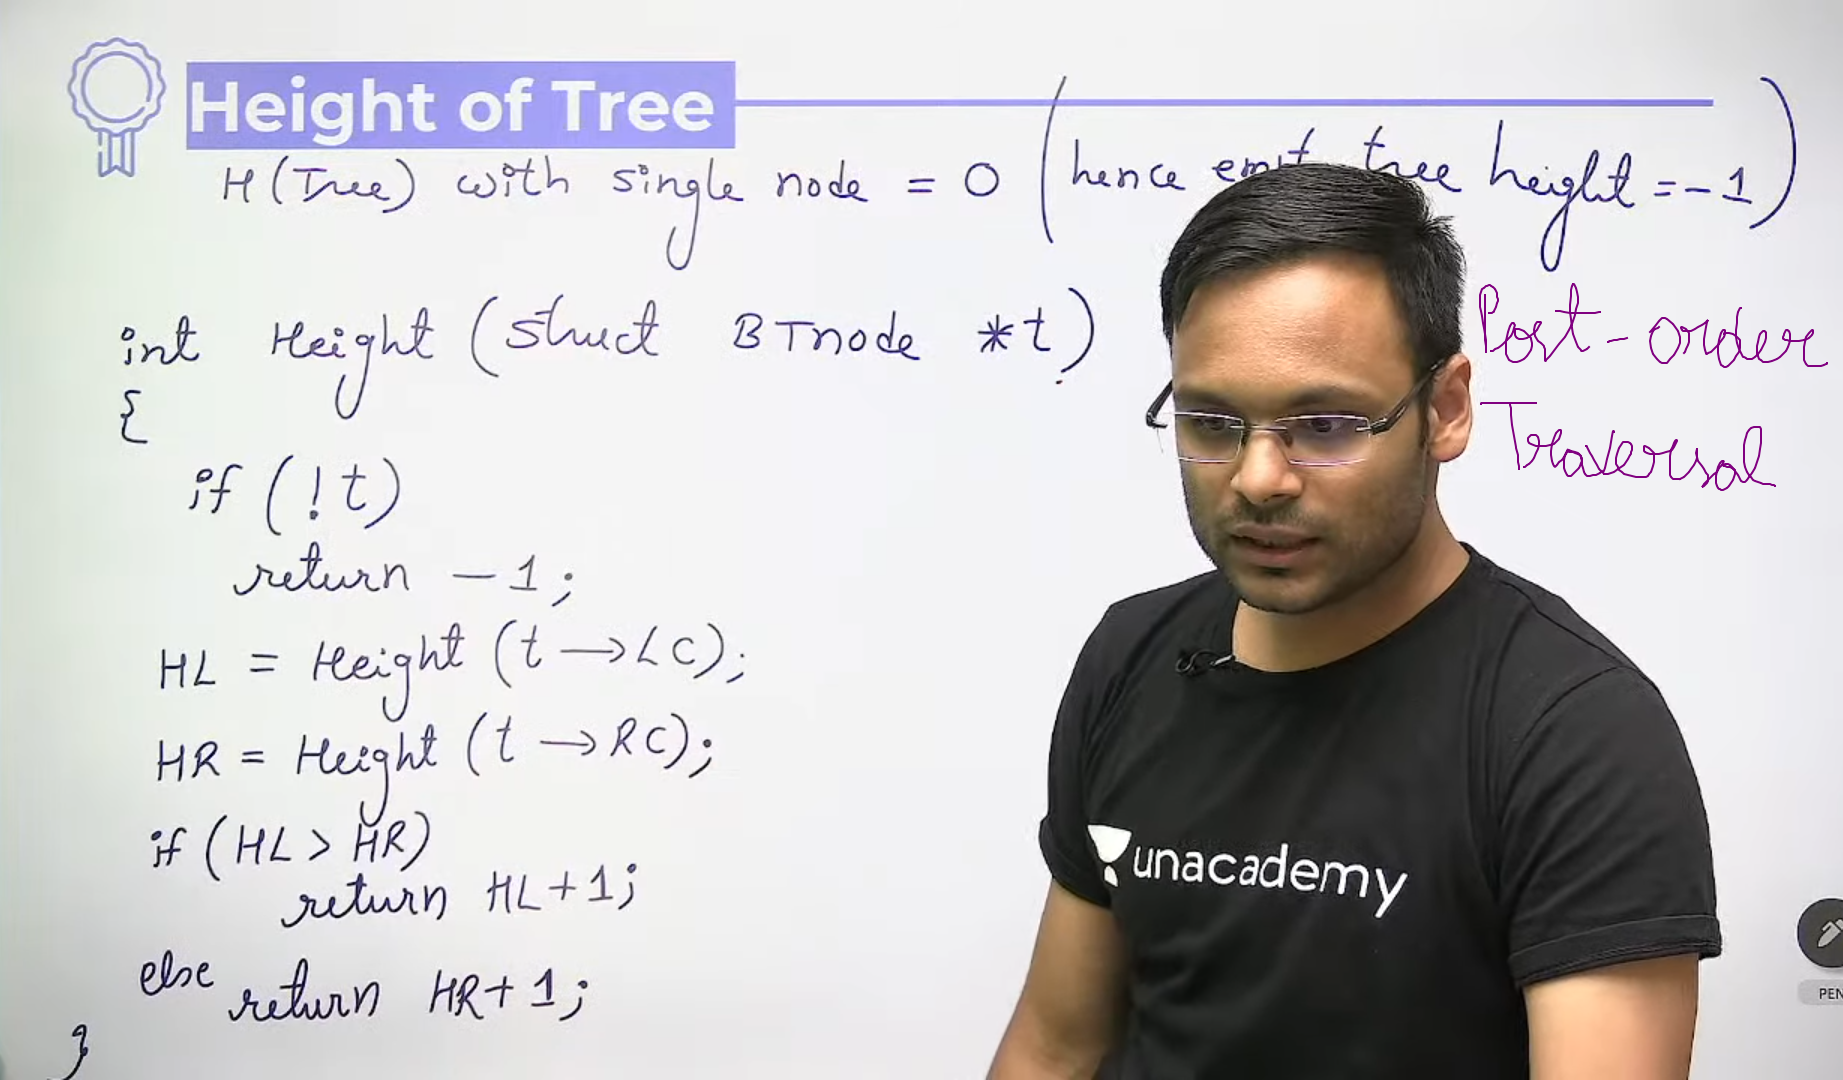 Height of Tree
H (Tree) with single node = 0 (hence tree height = -1)
int Height (struct BTnode *t)
{
if (!t)
return -1;
HL = Height (t → LC);
HR = Height (t → RC);
if (HL > HR)
return HL+1;
else return HR+1;
}
Post-order
Traversal
unacademy
PEN